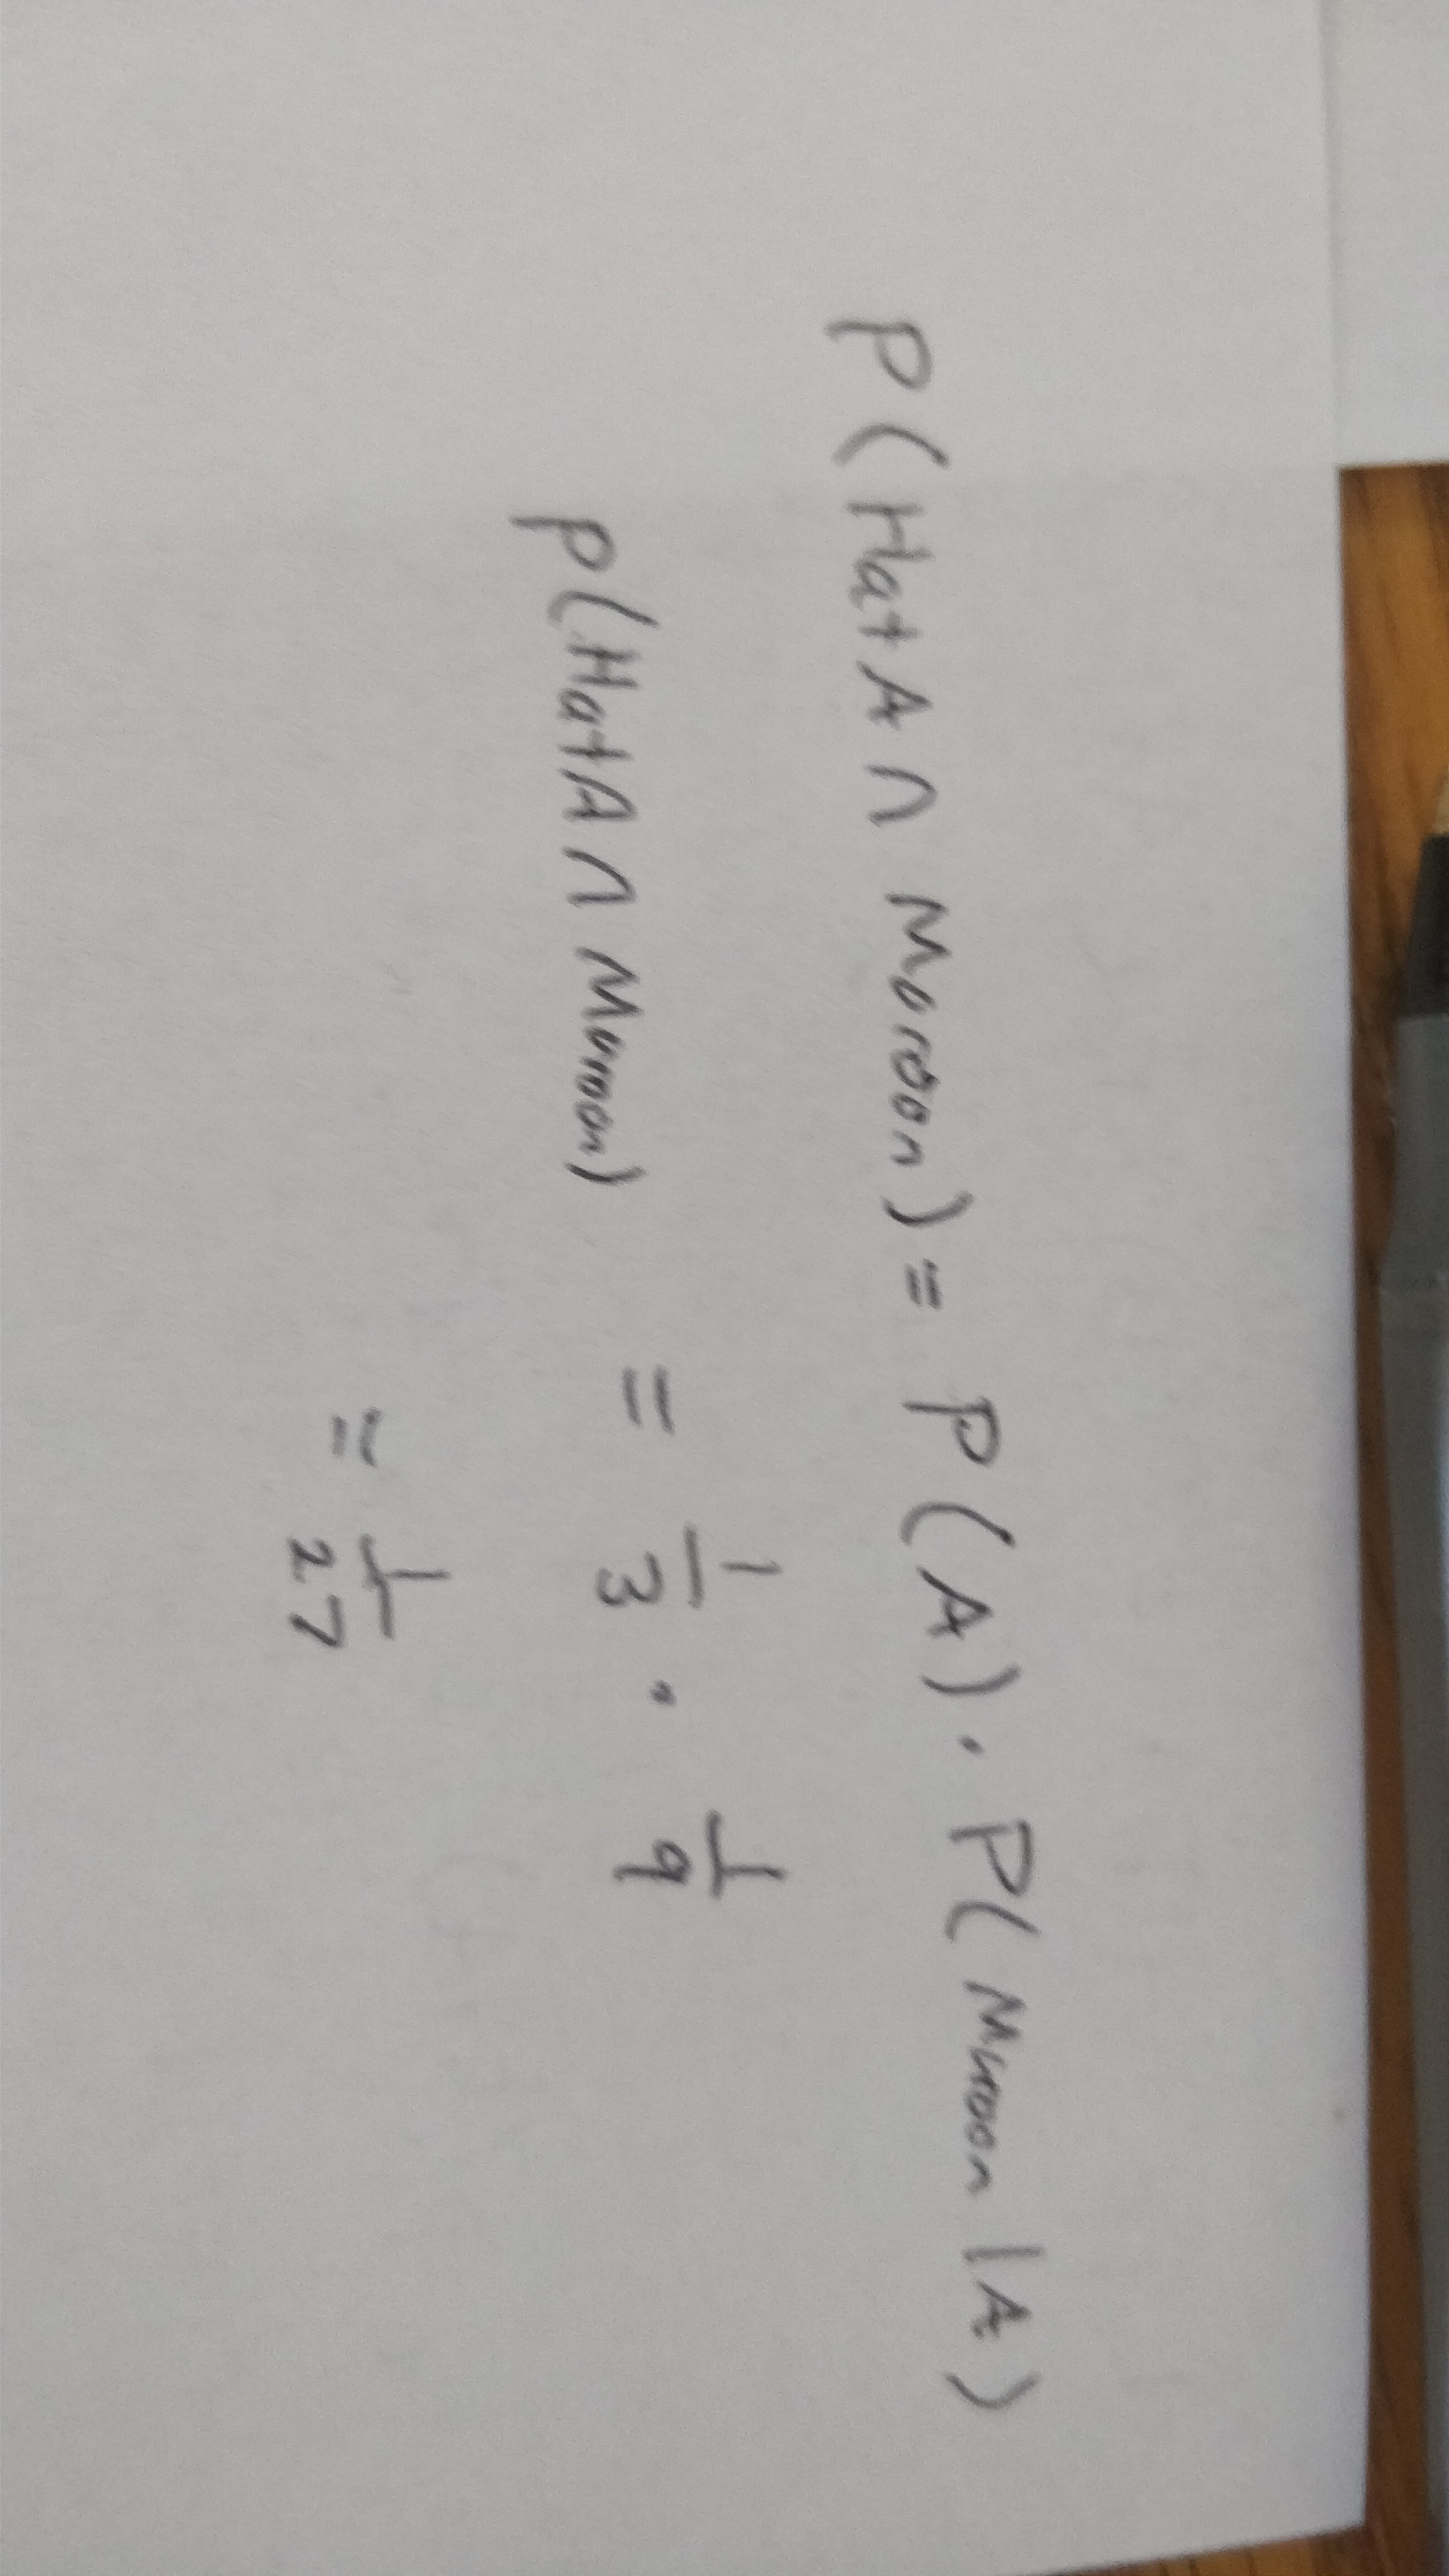 P(Hat A ∩ Maroon) = P(A) · P(Maroon | A)
P(Hat A ∩ Maroon) = 1/3 · 1/9
= 1/27